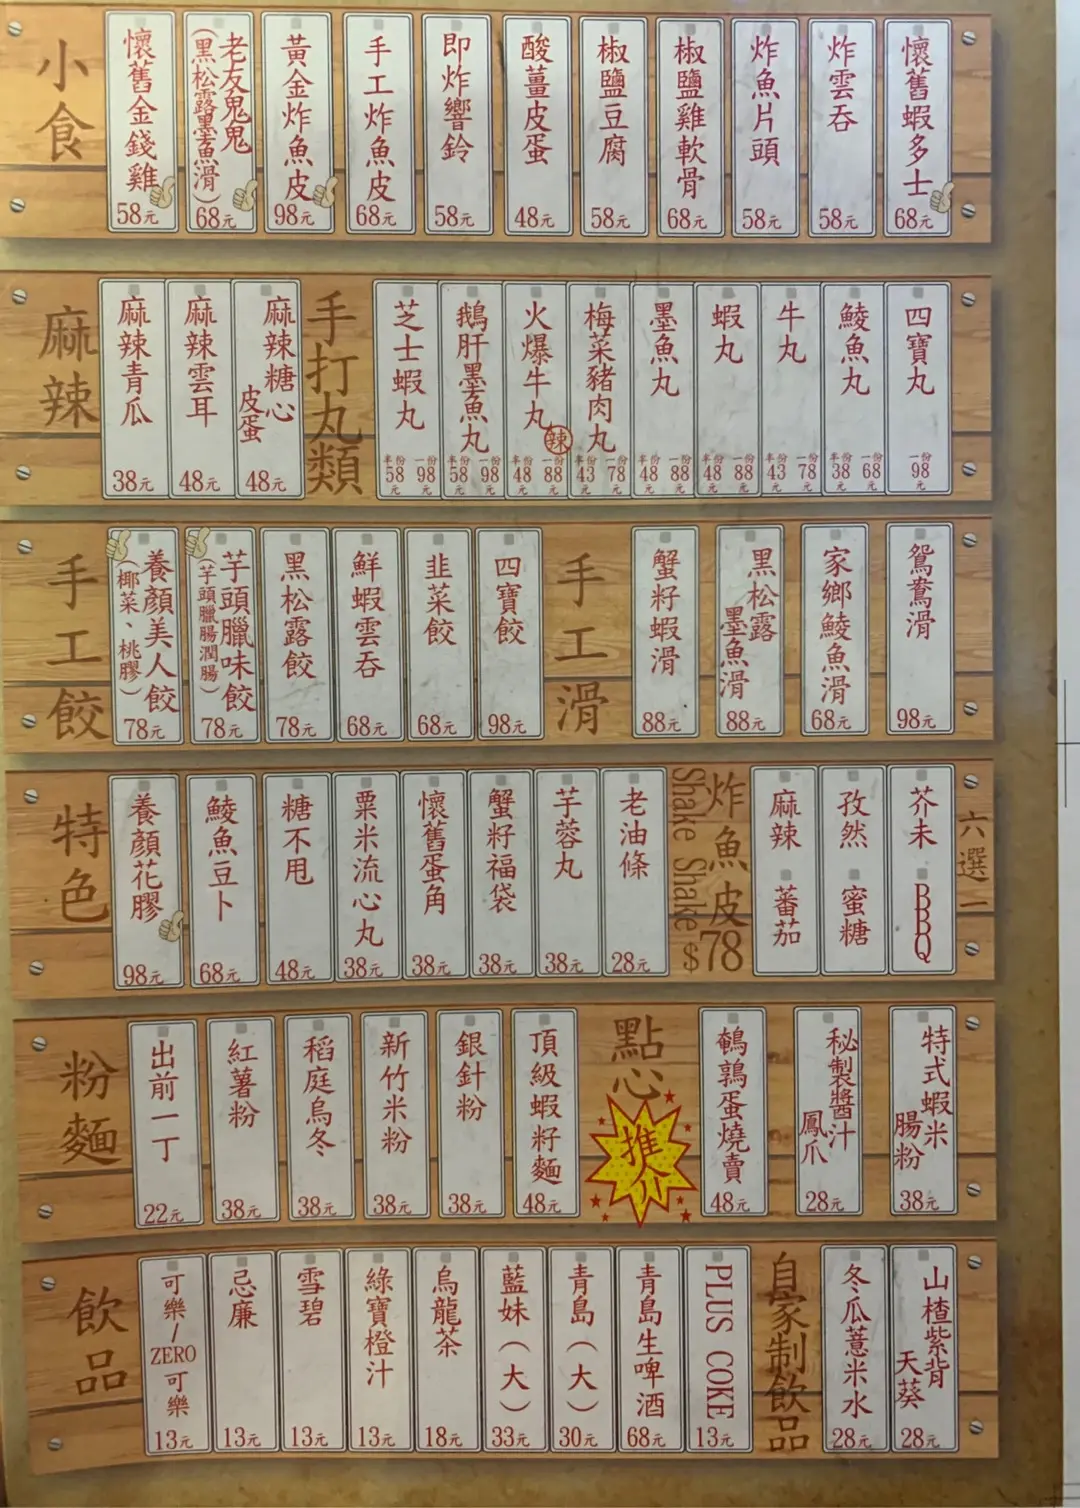 小食
懷舊金錢雞
58元
老友鬼鬼
(黑松露墨魚滑)
68元
黃金炸魚皮
98元
手工炸魚皮
68元
即炸響鈴
58元
酸薑皮蛋
48元
椒鹽豆腐
58元
椒鹽雞軟骨
68元
炸魚片頭
58元
炸雲吞
58元
懷舊蝦多士
68元
麻辣
麻辣青瓜
38元
麻辣雲耳
48元
麻辣糖心
皮蛋
48元
手打丸類
芝士蝦丸
半份58元 一份98元
鵝肝墨魚丸
半份58元 一份98元
火爆牛丸
辣
半份48元 一份88元
梅菜豬肉丸
半份43元 一份78元
墨魚丸
半份48元 一份88元
蝦丸
半份48元 一份88元
牛丸
半份43元 一份78元
鯪魚丸
半份38元 一份68元
四寶丸
一份98元
手工餃
養顏美人餃
(椰菜、桃膠)
78元
芋頭臘味餃
(芋頭臘腸潤腸)
78元
黑松露餃
78元
鮮蝦雲吞
68元
韭菜餃
68元
四寶餃
98元
手工滑
蟹籽蝦滑
88元
黑松露
墨魚滑
88元
家鄉鯪魚滑
68元
鴛鴦滑
98元
特色
養顏花膠
98元
鯪魚豆卜
68元
糖不甩
48元
粟米流心丸
38元
懷舊蛋角
38元
蟹籽福袋
38元
芋蓉丸
38元
老油條
28元
炸魚皮
Shake Shake $78
麻辣
蕃茄
孜然
蜜糖
芥末
BBQ
六選一
粉麵
出前一丁
22元
紅薯粉
38元
稻庭烏冬
38元
新竹米粉
38元
銀針粉
38元
頂級蝦籽麵
48元
點心
推介
鵪鶉蛋燒賣
48元
秘製醬汁
鳳爪
28元
特式蝦米
腸粉
38元
飲品
可樂/ZERO可樂
13元
忌廉
13元
雪碧
13元
綠寶橙汁
13元
烏龍茶
18元
藍妹(大)
33元
青島(大)
30元
青島生啤酒
68元
PLUS COKE
13元
自家制飲品
冬瓜薏米水
28元
山楂紫背
天葵
28元